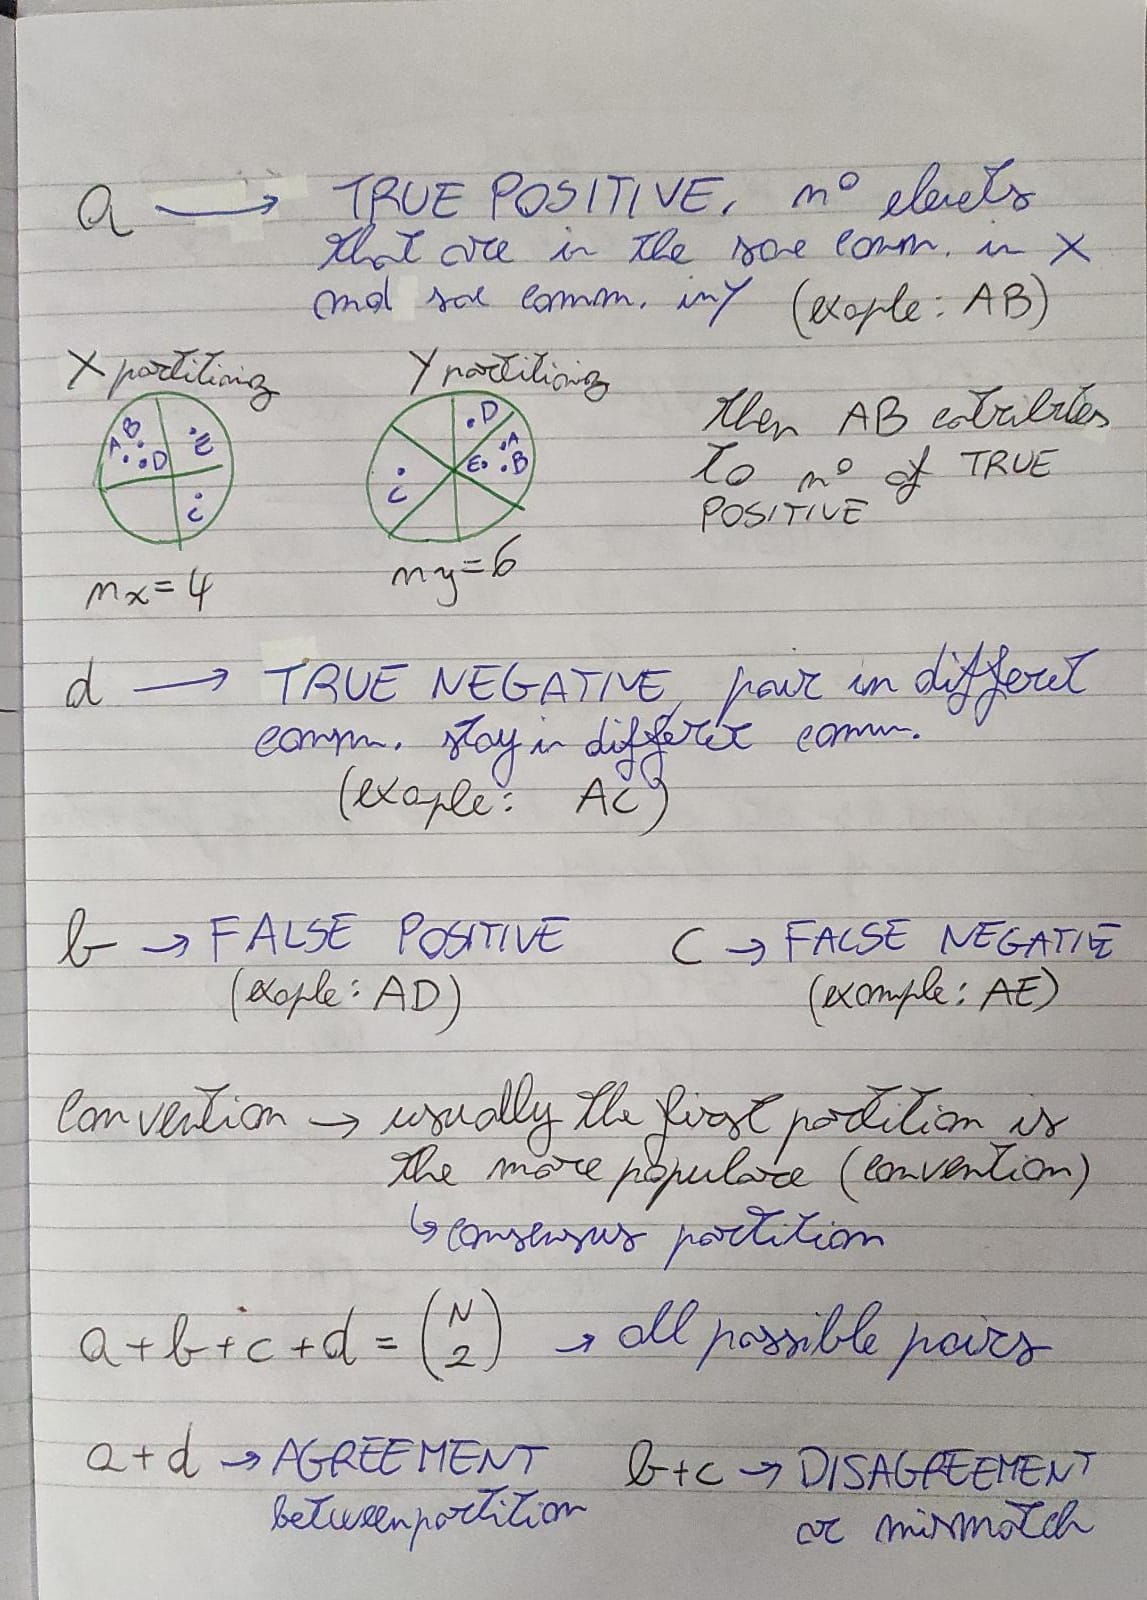 a → TRUE POSITIVE, n° elemets
that are in the same comm. in X
and same comm. in Y (exaple: AB)
X partitioning Y partitioning
A B D E C
D A B E C
then AB cotributes
to n° of TRUE
POSITIVE
nx = 4 ny = 6
d → TRUE NEGATIVE, pair in differet
comm. stay in differet comm.
(exaple: AC)
b → FALSE POSITIVE c → FALSE NEGATIVE
(exaple: AD) (example: AE)
convention → usually the first partition is
the more populare (convention)
↳ consensus partition
a + b + c + d = (N 2) → all possible pairs
a + d → AGREEMENT b + c → DISAGREEMENT
between partition or mismatch